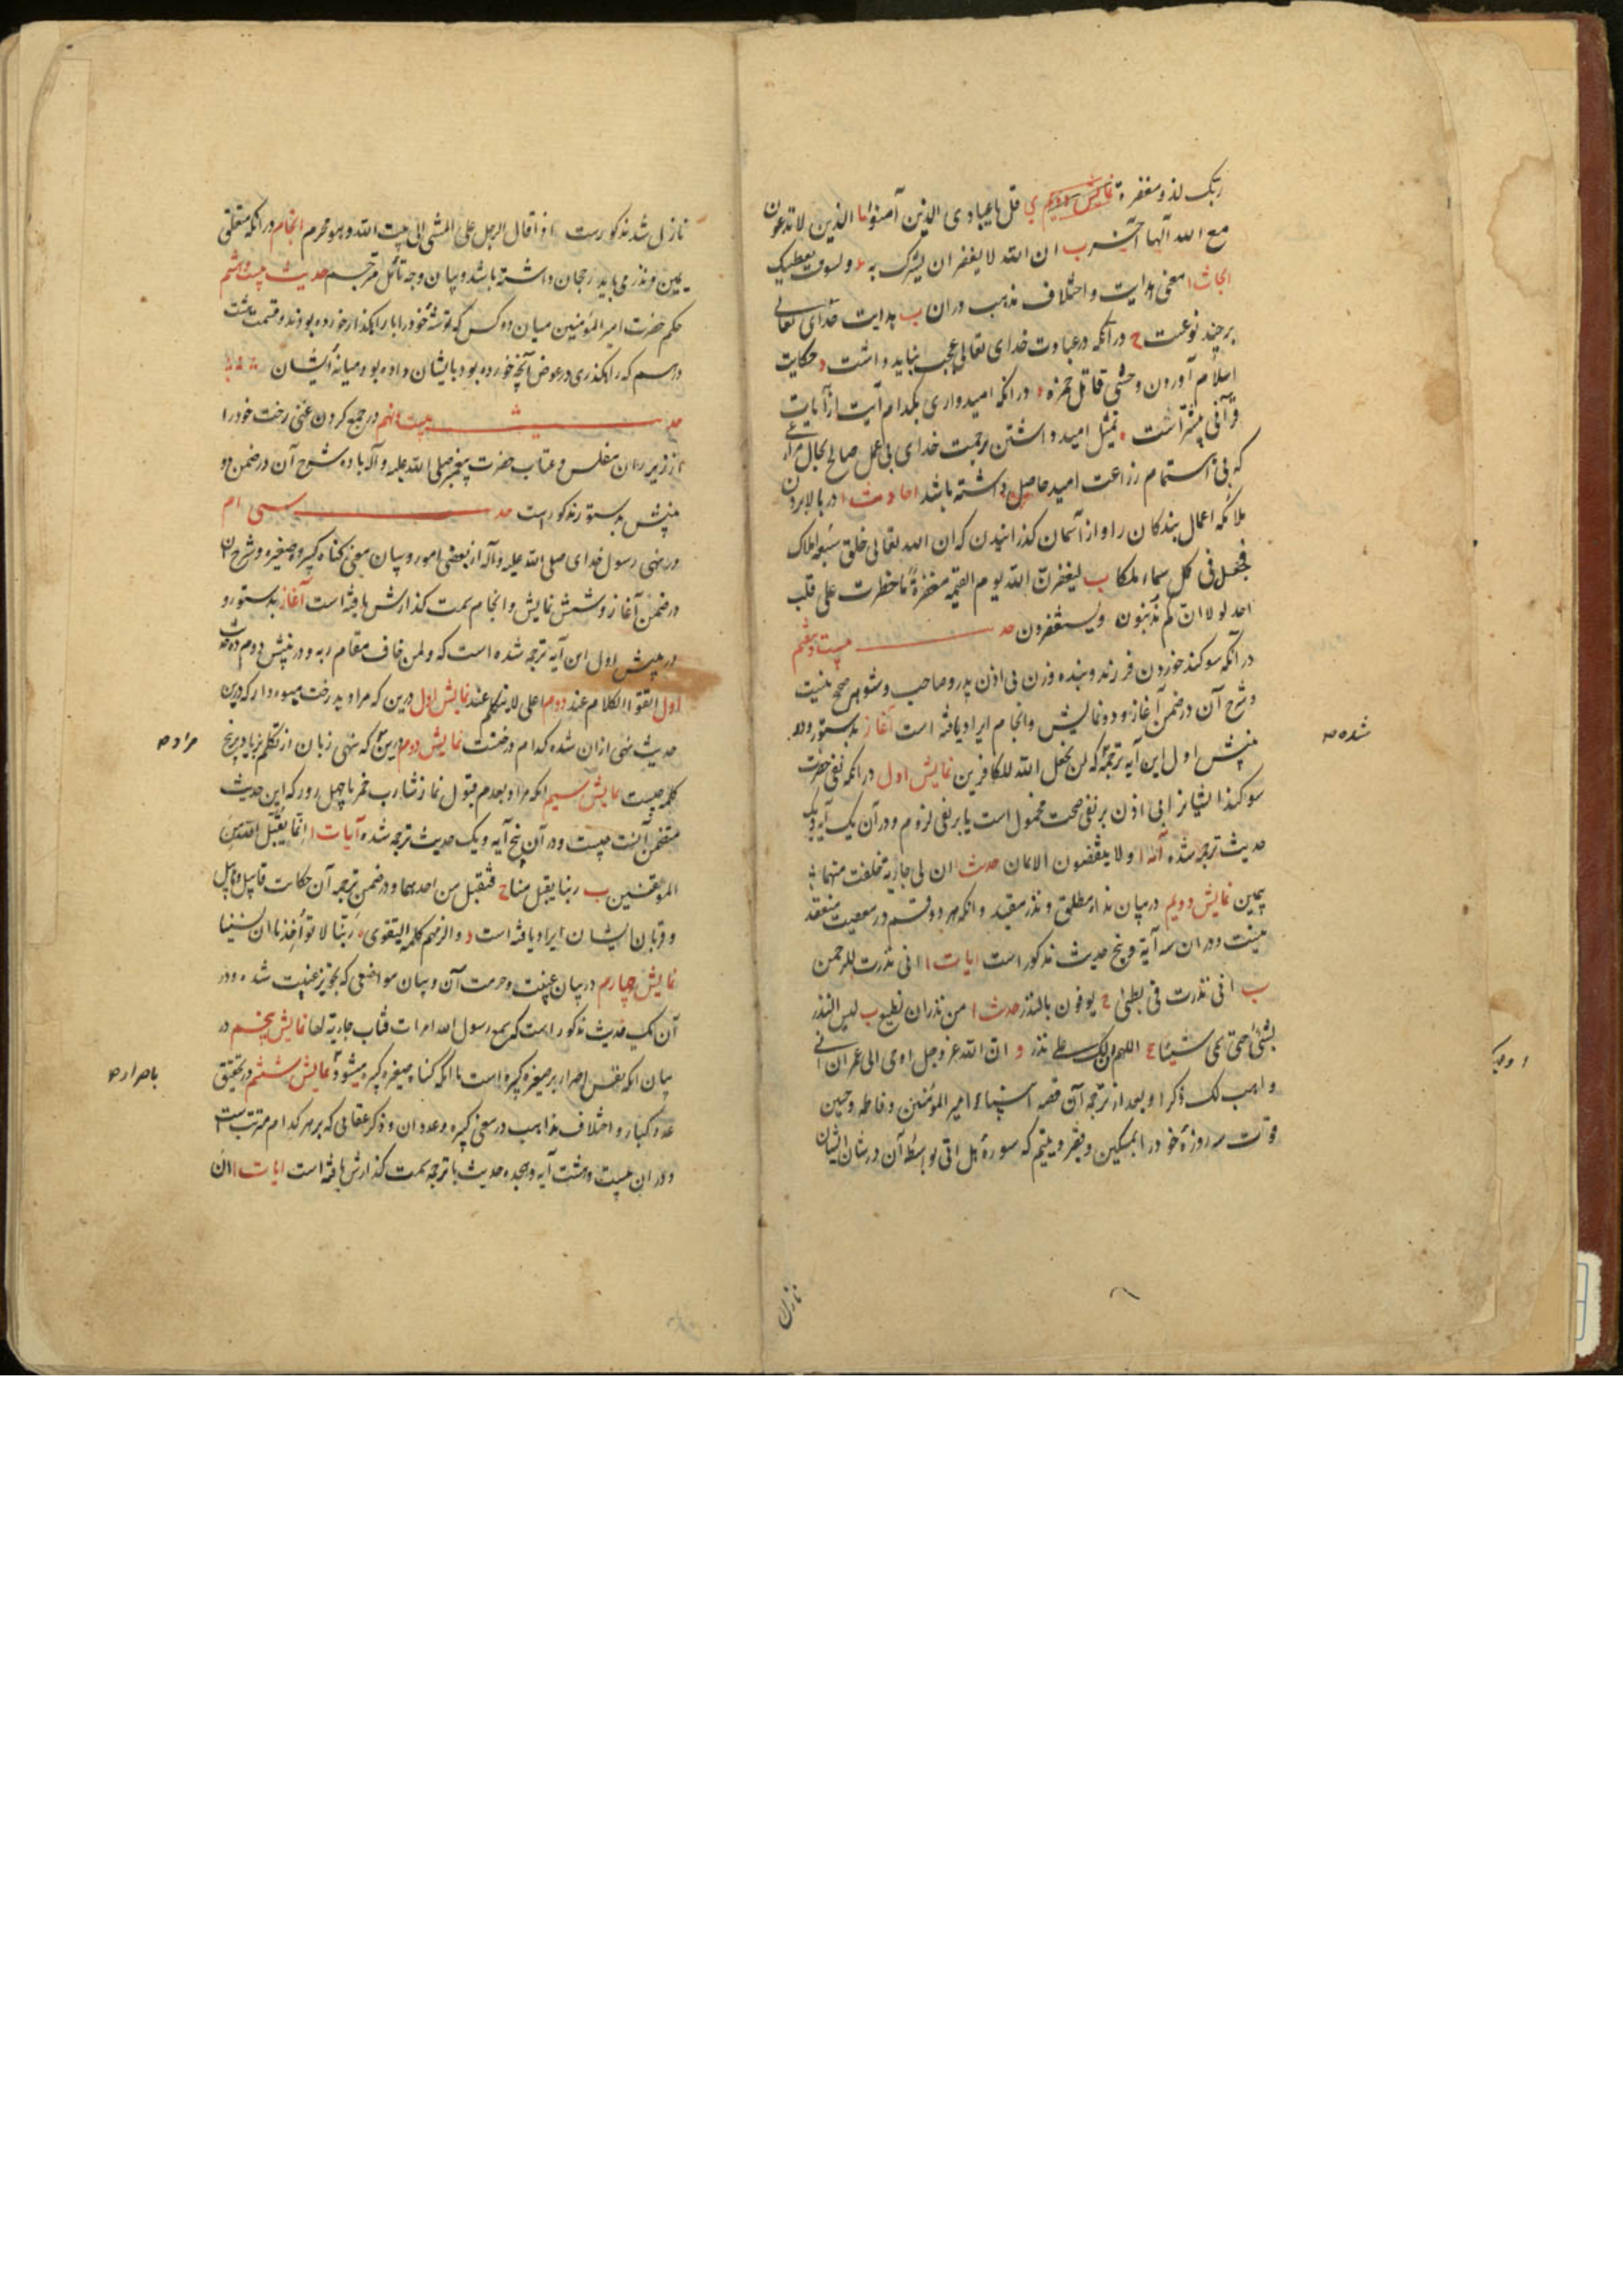 ربک لذو مغفرة نمایش دویم ی قل یا عبادی الذین آمنوا ما الذین لا تدعون
مع الله آلها آخر ب ان الله لا یغفر ان یشرک به و لسوف یعطیک
ابحاث ا معنی هدایت و اختلاف مذهب در ان ب هدایت خدای تعالی
بر چند نوعست ج در آنکه در عبادت خدای تعالی عجب نباید داشت د حکایت
اسلام آوردن وحشی قاتل حمزه ه در انکه امیدواری بکدام آیت از آیات
قرآنی بیشتر است تمثیل امید داشتن برحمت خدای بی عمل صالح بحال
که بی اهتمام زراعت امید حاصل داشته باشد احادیث ا در بالا بردن
ملائکه اعمال بندکان را و از آسمان کذرانیدن که ان الله تعالی خلق سبعه املاک
فجعل فی کل سماء ملکا ب لیغفرن الله یوم القیمه مغفرة ما خطرت علی قلب
احد لولا انکم تذنبون و یستغفرون حد بیست و هفتم
در آنکه سوکند خوردن فرزند و بنده و زن بی اذن پدر و صاحب و شوهر صحیح نیست
و شرح آن در ضمن آغاز و دو نمایش و انجام ایراد یافته است آغاز بدستور و در
بینش اول این آیه ترجمه که لن یجعل الله للکافرین نمایش اول در آنکه نفی حضرت
سوکند ایشانرا بی اذن بر نفی صحت محمول است یا بر نفی لزوم و در آن یک آیه و یک
حدیث ترجمه شده آیه ا و لا ینقضون الایمان حدیث ان لی جاریه فحلفت منها
بیمین نمایش دویم در بیان نذر مطلق و نذر مقید و انکه هر دو قسم در معصیت منعقد
نیست و در ان سه آیة و پنج حدیث مذکور است ایات ا انی نذرت للرحمن
ب انی نذرت فی بطنی ج یوفون بالنذر حدیث ا من نذر ان یطیع ب لیس النذر
بشیء حتی یسمی شیئا ج اللهم لک علی نذر د ان الله عز و جل اوحی الی عمران انی
واهب لک ذکرا و بعد از ترجمه آن قصه امیر المؤمنین و فاطمه و حسین
قوت سه روزهٔ خود را بمسکین و فقیر و یتیم که سورهٔ هل اتی بواسطه آن در شان ایشان
شده صه
نازل
نازل شد مذکورست اذا قال الرجل علی المشی الی بیت الله و هو محرم انجام در انکه متعلق
یمین و نذر می باید رجحان داشته باشد و بیان وجه تأمل مترجم حدیث بیست و هشتم
حکم حضرت امیر المؤمنین میان دو کس که توشهٔ خود را با راهکذار خورده بودند و قسمت هشت
درهم که راهکذری در عوض آنچه خورده بود بایشان داده بود میانهٔ ایشان
حدیث بیست و نهم در جمع کردن غنی رخت خود را
از زیر ران مفلس و عتاب حضرت پیغمبر صلی الله علیه و آله باو و شرح آن در ضمن دو
بینش بدستور مذکور است حد سی ام
در نهی رسول خدای صلی الله علیه و آله از بعضی امور و بیان معنی کناه کبیره و صغیره و شرح آن
در ضمن آغاز و شش نمایش و انجام سمت کذارش یافته است آغاز بدستور و
در بینش اول این آیه ترجمه شده است که و لمن خاف مقام ربه و در بینش دوم دو حدیث
اول اتقوا الکلام عند دوم علی لا یتکلم عند نمایش اول درین که مراد بدرخت میوه دار که درین
حدیث نهی از ان شده کدام درختست نمایش دوم درین که نهی زبان از تکلم بزیاد بر پنج
کلمه چیست نمایش سیم انکه مراد بعدم قبول نماز شارب خمر تا چهل روز که این حدیث
متضمن آنست چیست و در آن پنج آیه و یک حدیث ترجمه شده آیات ا انما یتقبل الله من
المتقین ب ربنا تقبل منا ج فتقبل من احدهما و در ضمن ترجمه آن حکایت قابیل و هابیل
و قربان ایشان ایراد یافته است د و الزمهم کلمة التقوی ه ربنا لا تؤاخذنا ان نسینا
نمایش چهارم در بیان غیبت و حرمت آن و بیان مواضعی که تجویز غیبت شده و در
آن یک حدیث مذکور است که سمع رسول الله امراة تساب جاریة لها نمایش پنجم در
بیان انکه نفس اصرار بر صغیره کبیره است یا انکه کناه صغیره کبیره میشود نمایش ششم در تحقیق
عدد کبائر و اختلاف مذاهب در معنی کبیره و عدد ان و ذکر عقابی که بر هر کدام مترتب است
و در ان بیست و هشت آیه و هجده حدیث با ترجمه سمت کذارش یافته است ایات ا ان
مراد صه
باصرار صه